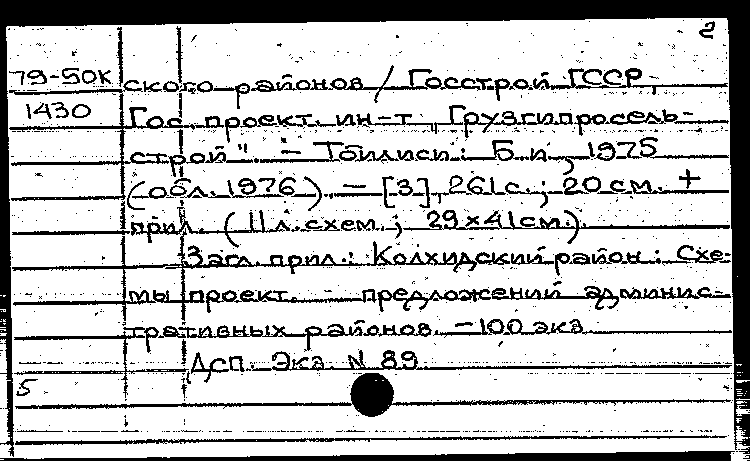 2
79-50К ского районов / Госстрой ГССР,
1430 Гос. проект. ин-т „Грузгипросель-
строй". – Тбилиси: Б.и., 1975
(обл. 1976). – [3], 261 с.; 20 см. +
прил. (11 л. схем.; 29×41 см.).
Загл. прил.: Колхидский район: Схе-
мы проект. - предложений админис-
тративных районов. – 100 экз.
Дсп. Экз. N 89.
5